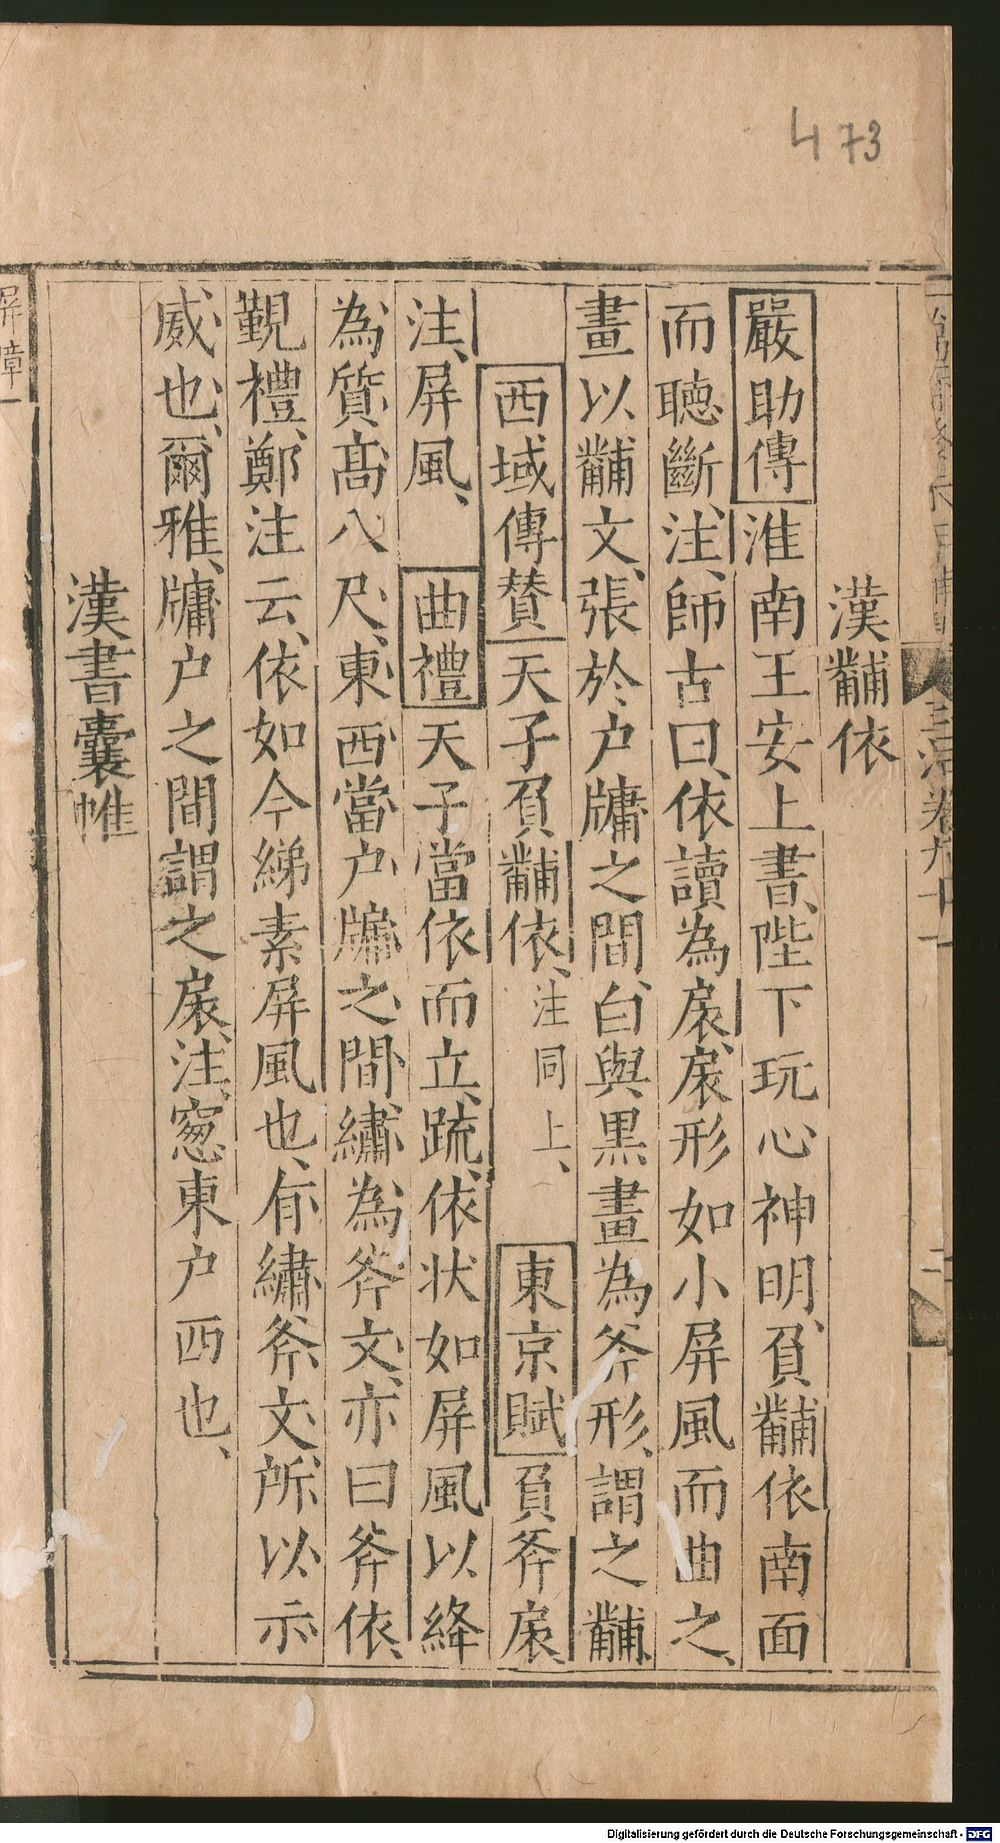 473
漢黼依
嚴助傳淮南王安上書、陛下玩心神明、負黼依南面
而聽斷、注、師古曰、依讀為扆、扆形如小屏風而曲之、
畫以黼文、張於户牖之間、白與黑畫為斧形、謂之黼、
西域傳贊天子負黼依、注同上、東京賦負斧扆、
注、屏風、曲禮天子當依而立、疏、依状如屏風以絳
為質、高八尺、東西當户牖之間、繡為斧文、亦曰斧依、
覲禮、鄭注云、依如今綈素屏風也、有繡斧文、所以示
威也、爾雅、牖户之間謂之扆、注、窓東户西也、
漢書囊帷
屏障
Digitalisierung gefördert durch die Deutsche Forschungsgemeinschaft - DFG